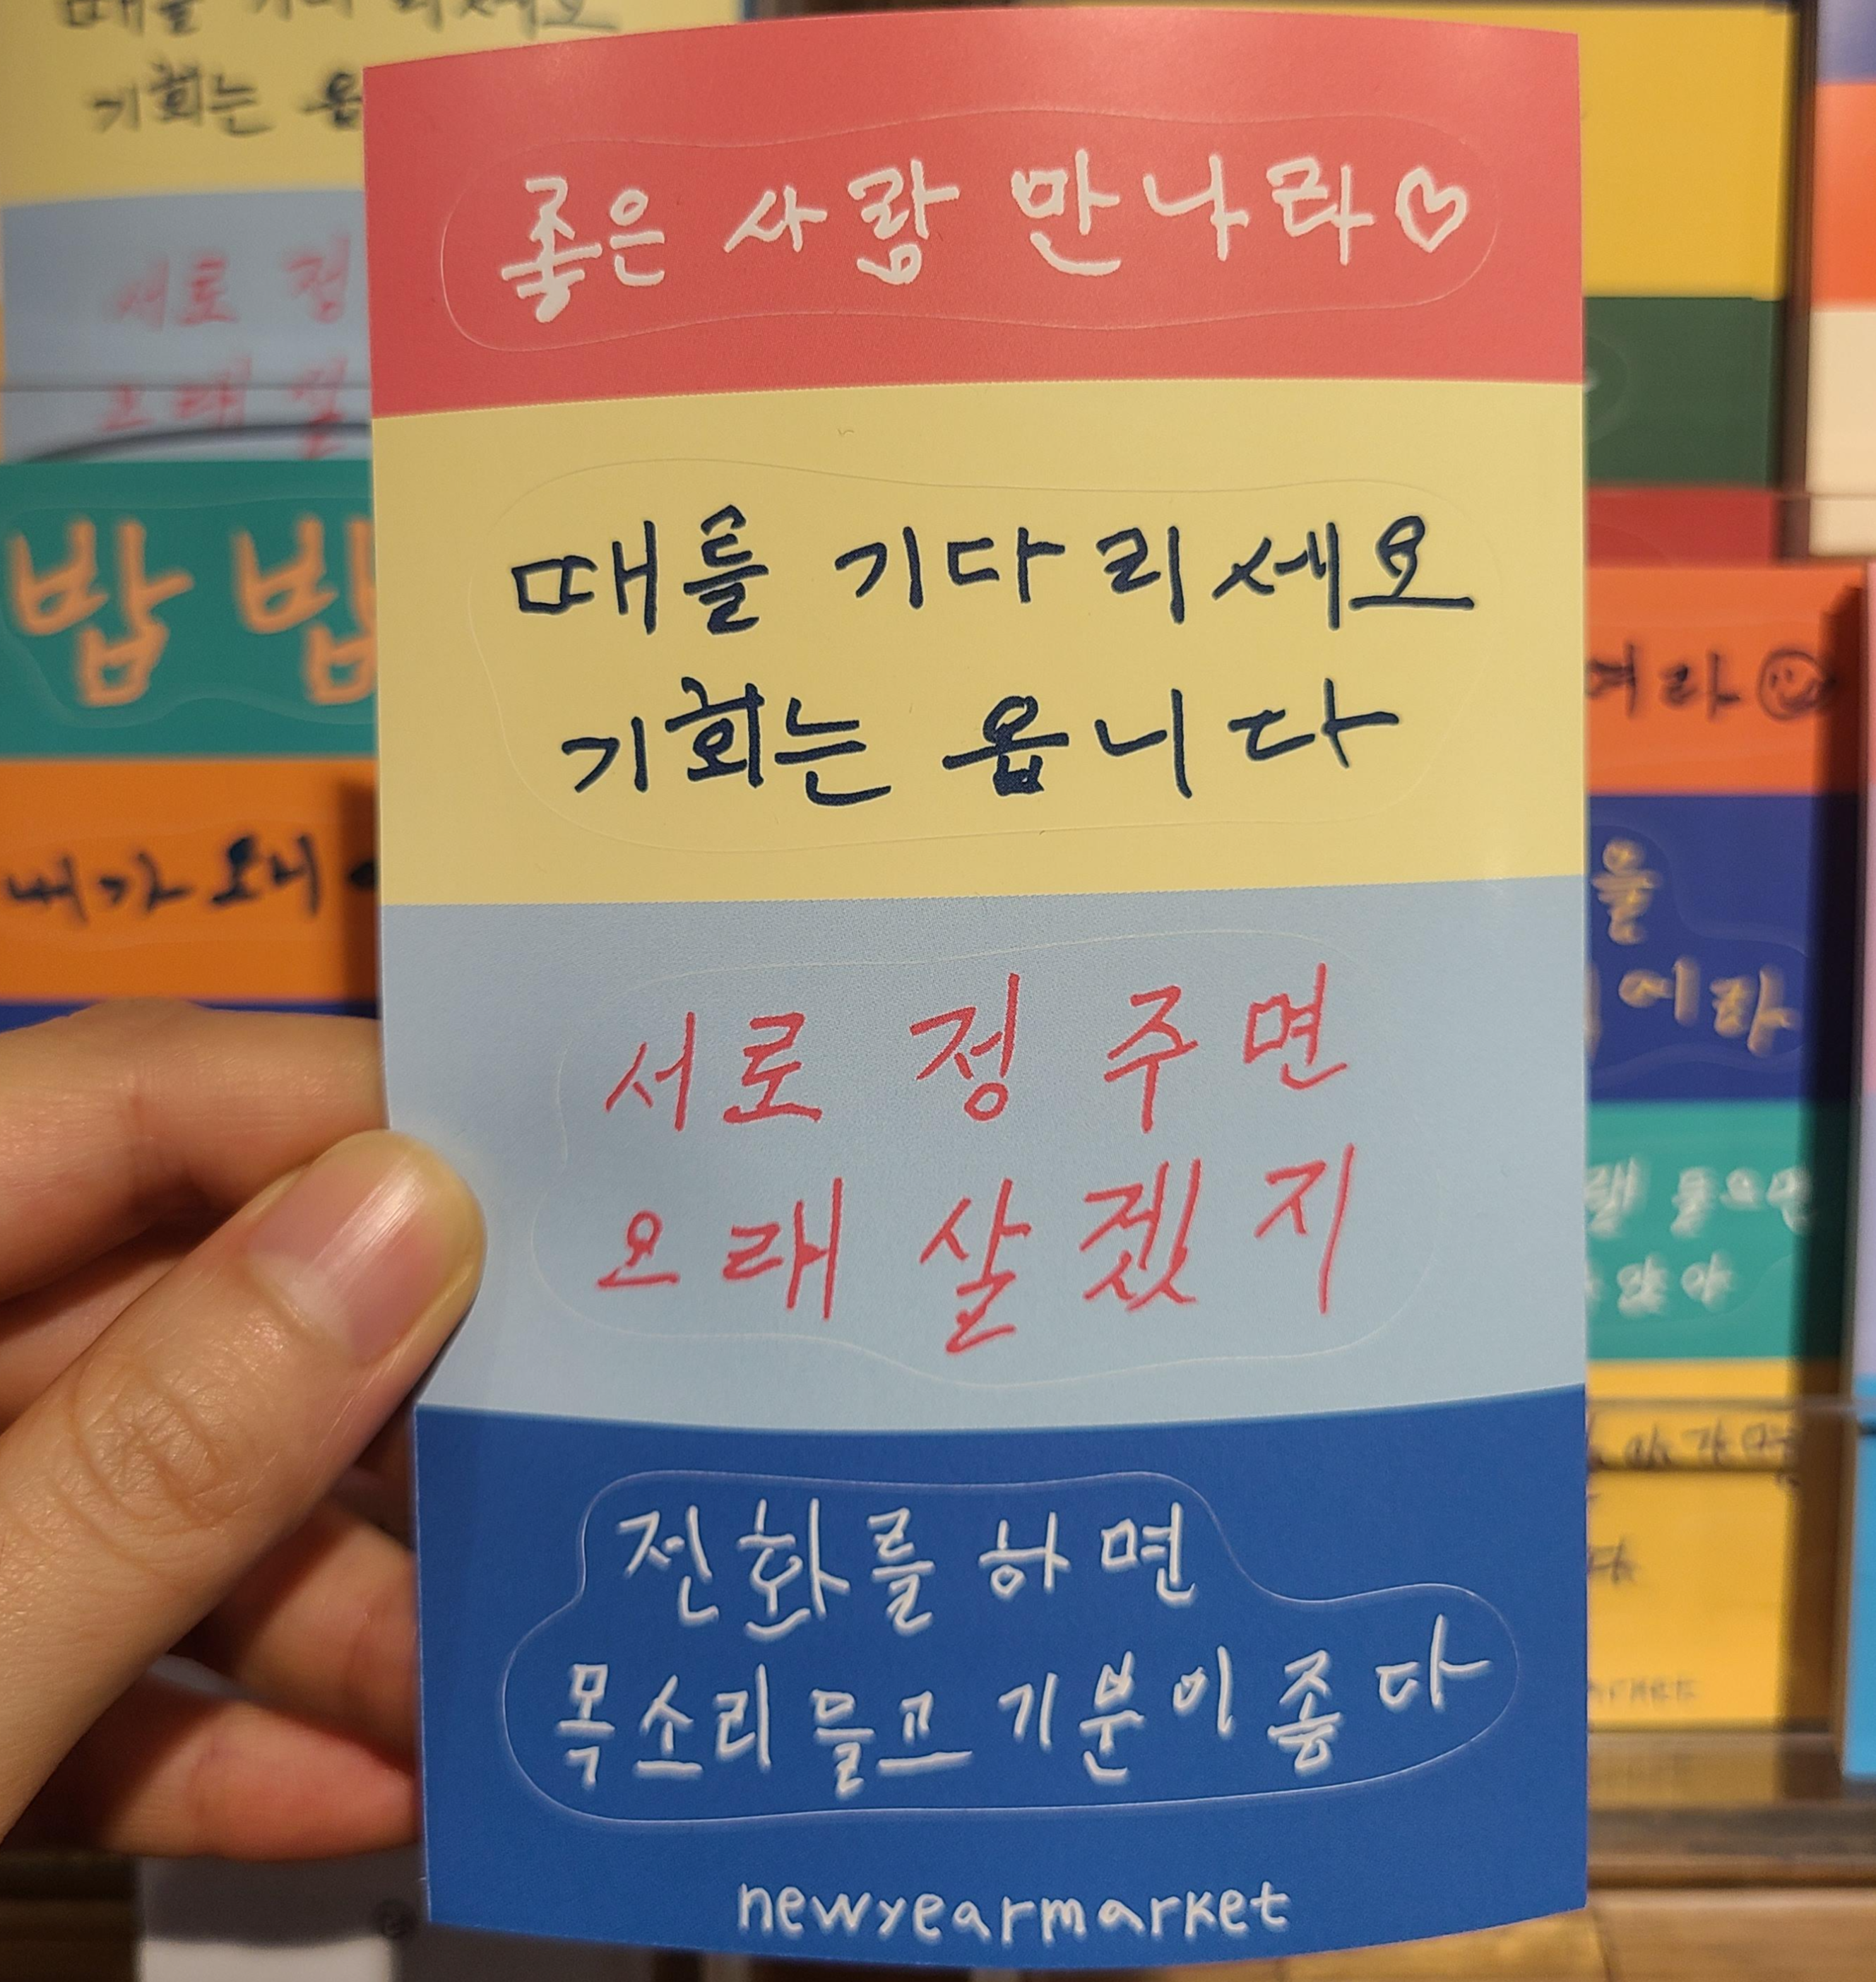 좋은 사람 만나라♡
때를 기다리세요
기회는 옵니다
서로 정 주면
오래 살겠지
전화를 하면
목소리 듣고 기분이 좋다
newyearmarket
기회는
서로 정
오래 살
밥 밥
내가